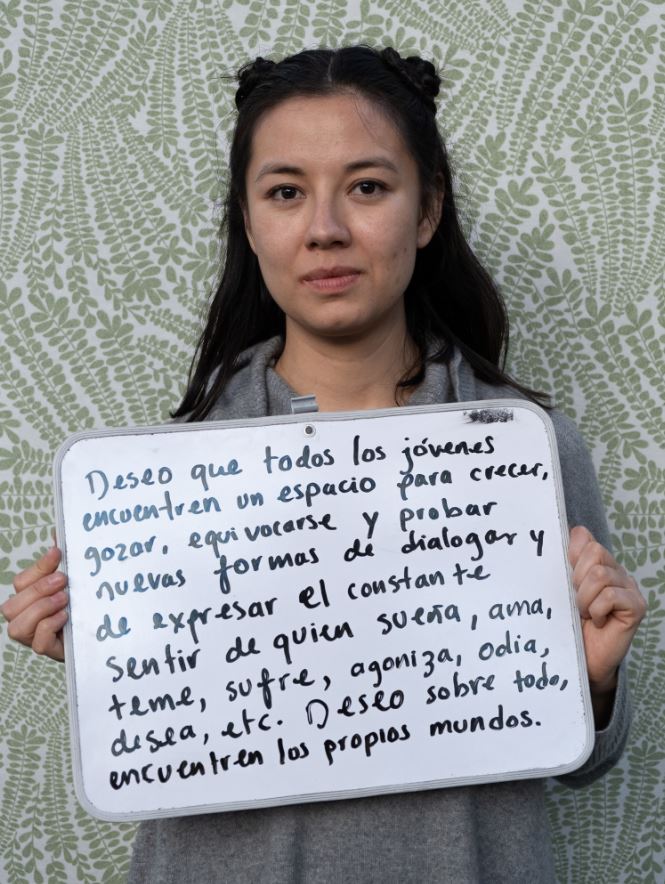 Deseo que todos los jóvenes
encuentren un espacio para crecer,
gozar, equivocarse y probar
nuevas formas de dialogar y
de expresar el constante
sentir de quien sueña, ama,
teme, sufre, agoniza, odia,
desea, etc. Deseo sobre todo,
encuentren los propios mundos.